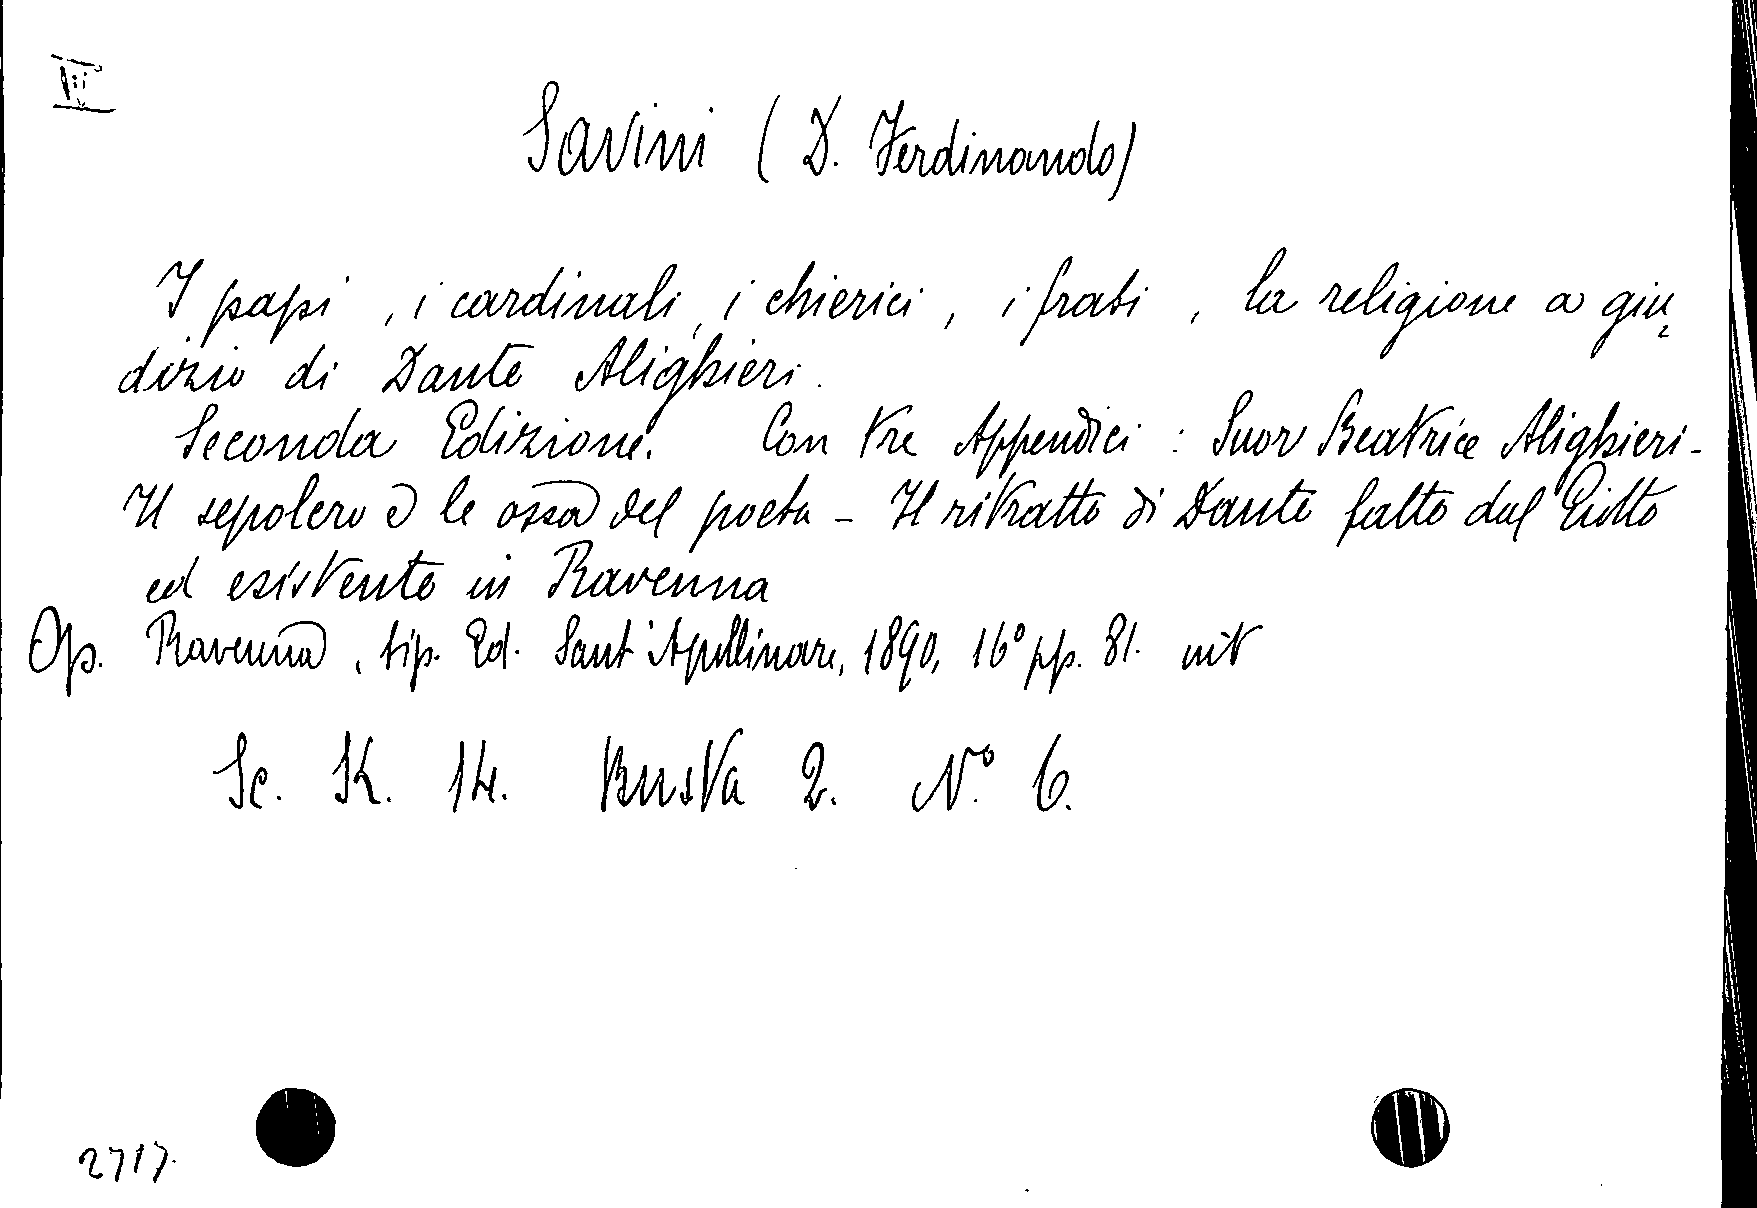 III
Savini (D. Ferdinando)
I papi, i cardinali, i chierici, i frati, la religione a giu-
dizio di Dante Alighieri.
Seconda Edizione. Con tre Appendici: Suor Beatrice Alighieri-
Il sepolcro e le ossa del poeta - Il ritratto di Dante fatto dal Giotto
ed esistente in Ravenna
Op. Ravenna, tip. Ed. Sant'Apollinare, 1890, 16° pp. 81.
Sc. K. 14. Busta 2. N.° 6.
2717.